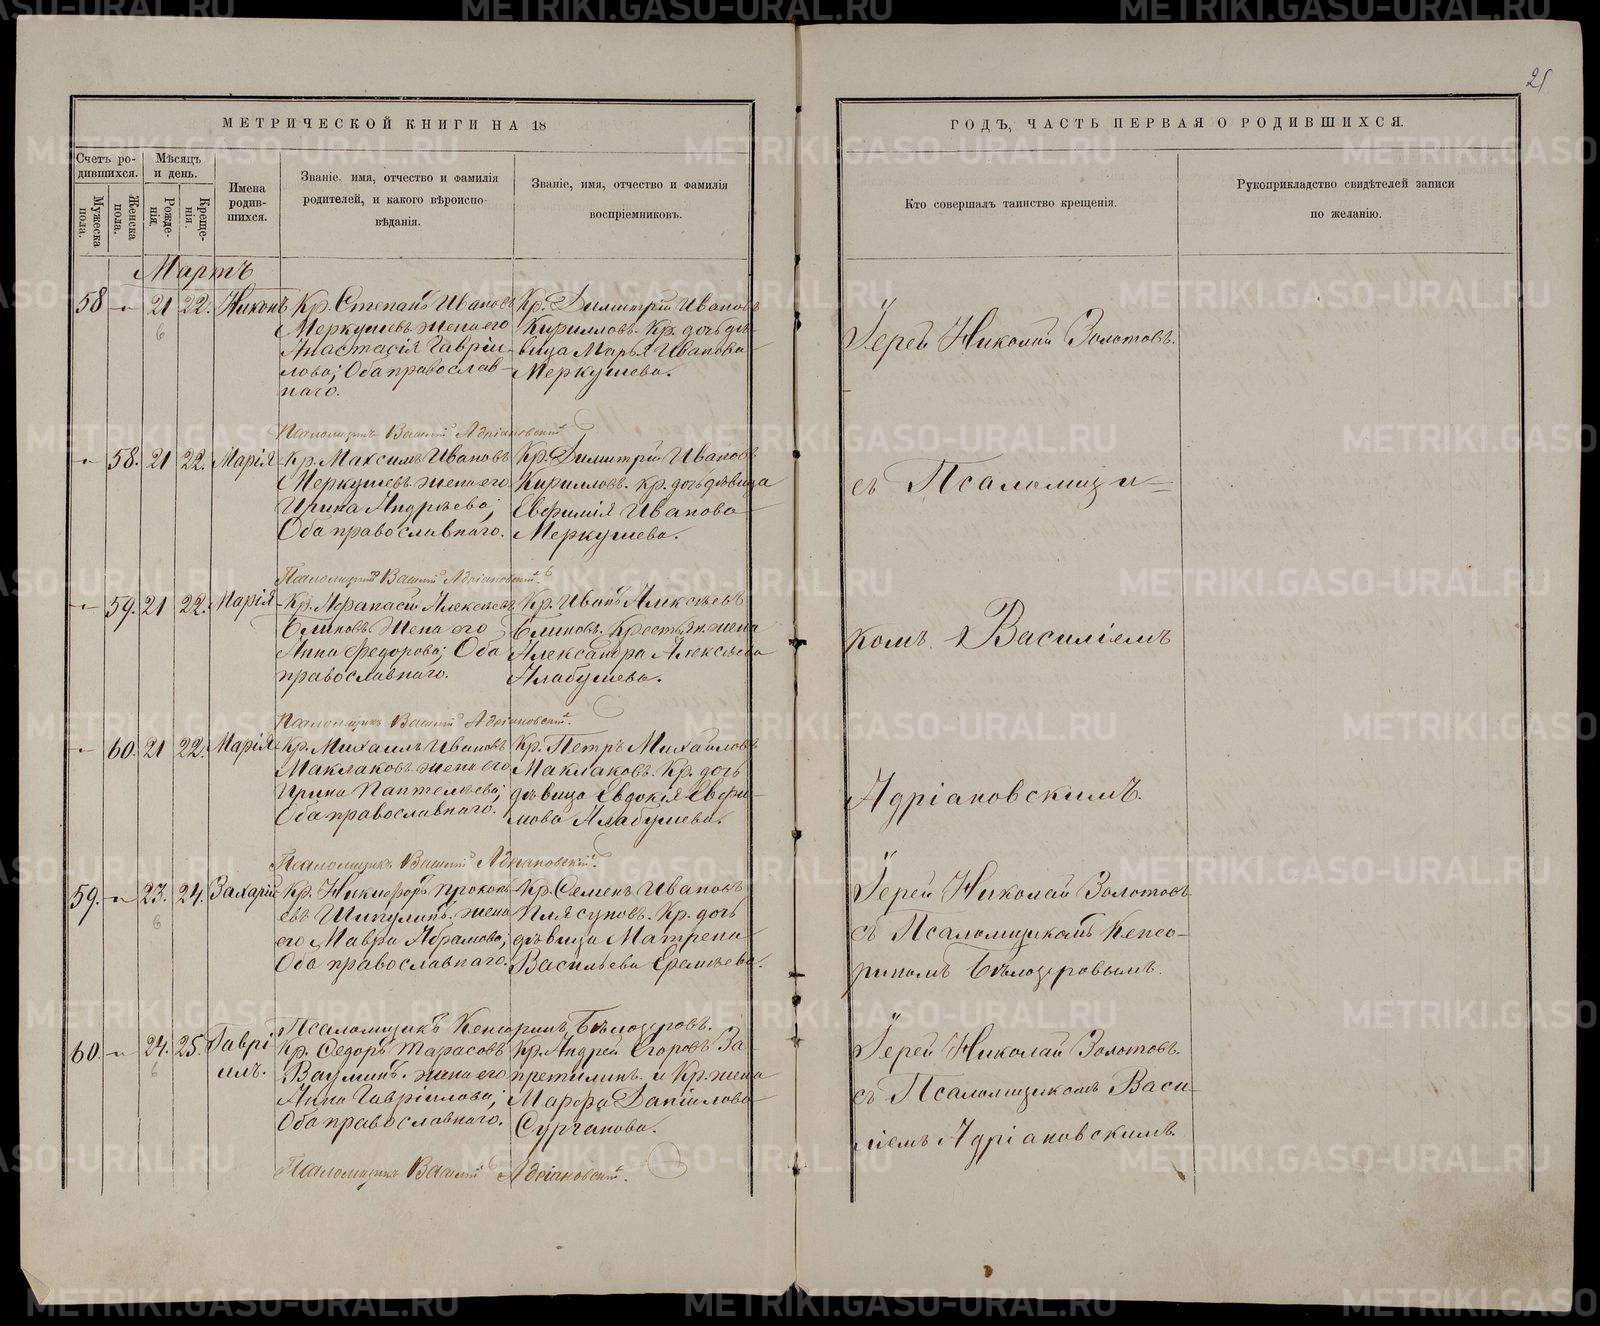 21
МЕТРИЧЕСКОЙ КНИГИ НА 18
ГОДЪ, ЧАСТЬ ПЕРВАЯ О РОДИВШИХСЯ.
Счетъ ро-
дившихся.
Мужеска пола.
Женска пола.
Мѣсяцъ
и день.
Рожде-
нія.
Креще-
нія.
Имена
родив-
шихся.
Званіе, имя, отчество и фамилія
родителей, и какого вѣроиспо-
вѣданія.
Званіе, имя, отчество и фамилія
воспріемниковъ.
Кто совершалъ таинство крещенія.
Рукоприкладство свидѣтелей записи
по желанію.
Мартъ
58 21 22. Никонъ Кр. Степанъ Ивановъ Кр. Димитрій Ивановъ
6 Меркушевъ жена его Кирилловъ. Кр. дочь дѣ-
Анастасія Гаврии- вица Марья Иванова
лова; Оба православ- Меркушева.
наго.
Іерей Николай Золотовъ.
Псаломщикъ Василій Адріановскій
58. 21 22. Марія Кр. Максимъ Ивановъ Кр. Димитрій Ивановъ
Меркушевъ жена его Кирилловъ. кр. дочь дѣвица
Ирина Андреева; Евфимія Иванова
Оба православнаго. Меркушева.
съ Псаломщи=
Псаломщикъ Василій Адріановскій.
59. 21 22. Марія Кр. Афанасій Алексѣевъ Кр. Иванъ Алексѣевъ
Блиновъ жена его Блиновъ. Крестьян. жена
Анна Федорова; Оба Александра Алексѣева
православнаго. Алабушева.
комъ Василіемъ
Псаломщикъ Василій Адріановскій.
60. 21 22. Марія Кр. Михаилъ Ивановъ Кр. Петръ Михайловъ
Маклаковъ жена его Маклаковъ. Кр. дочь
Ирина Пантелѣева; дѣвица Евдокія Евфи-
Оба православнаго. мова Алабушева.
Адріановскимъ.
Псаломщикъ Василій Адріановскій.
59. 23. 24. Захарій Кр. Никифоръ Прокопь- Кр. Семенъ Ивановъ
6 евъ Шипулинъ. жена Плясуновъ. Кр. дочь
его Мавра Абрамова; дѣвица Матрена
Оба православнаго. Васильева Еремѣева.
Іерей Николай Золотовъ
съ Псаломщикомъ Кенсо-
риномъ Бѣлозеровымъ.
Псаломщикъ Кенсоринъ Бѣлозеровъ.
60. 24. 25. Гаврі- Кр. Федоръ Тарасовъ Кр. Андрей Егоровъ За-
6 илъ. Ваулинъ. жена его претилинъ. и Кр. жена
Анна Гавріилова; Марфа Даниилова
Оба православнаго. Сурганова.
Іерей Николай Золотовъ.
съ Псаломщикомъ Васи-
ліемъ Адріановскимъ.
Псаломщикъ Василій Адріановскій.
METRIKI.GASO-URAL.RU